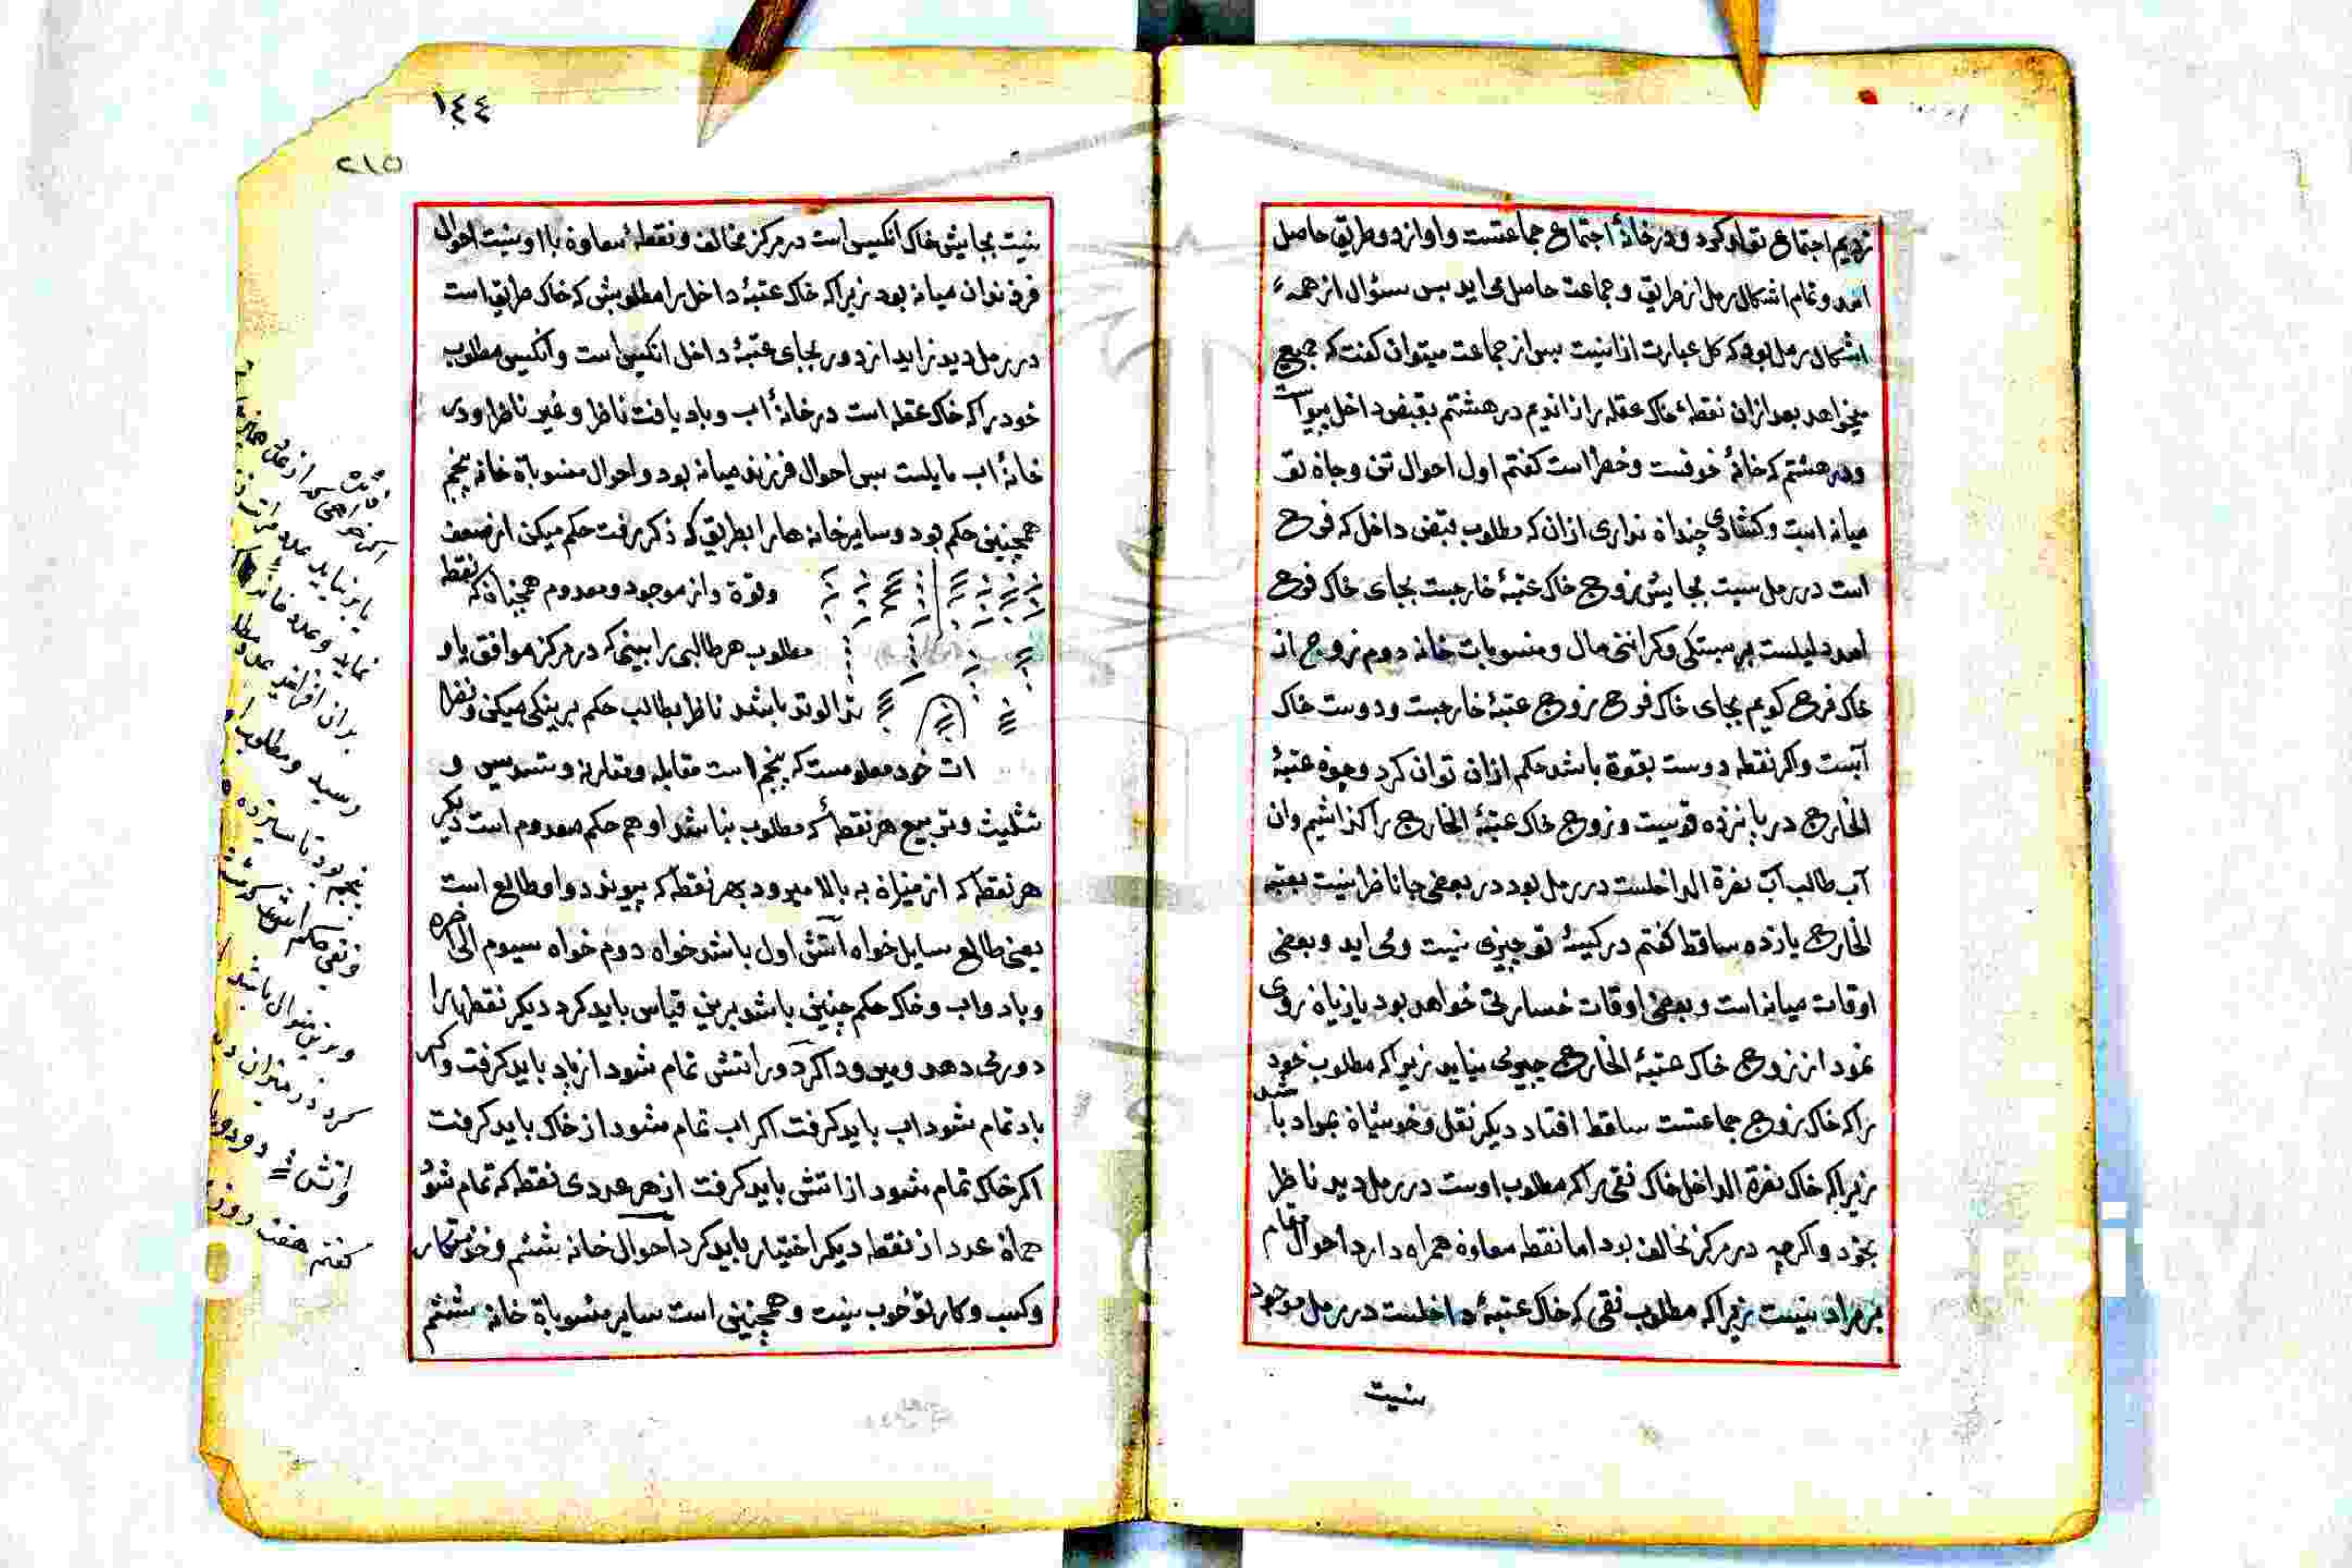 زدیم اجتماع تولد کرد و در خانهٔ اجتماع جماعتست و او از دو طریق حاصل
امد و تمام اشکال رمل از طریق و جماعت حاصل می اید بس سئوال از همهء
اشکال رمل بود که کل عبارت از اینیت بس از جماعت میتوان کفت که جمیع
میخواهد بعد از ان نقطهٔ خاک عقله را راندیم در هشتم بقبض داخل پیوست
و در هشتم که خانهٔ خوفست و خطر است کفتم اول احوال تن و جاه تو
میانه است و کشادی چنداه نداری ازان که مطلوب قبض داخل که فرح
است در رمل سیت بجایش زوج خاک عتبهٔ خارجست بجای خاک فرح
امد دلیلست بر بستکی و کرانی مال و منسوبات خانه دوم زوج از
خاک فرح کویم بجای خاک فرح زوج عتبهٔ خارجست و دوست خاک
آبست و اکر نقطه دوست بقوة باشد حکم ازان توان کرد و چوه عتبهٔ
الخارج در پانزده قویست و زوج خاک عتبهٔ الخارج را کذاشیم وان
آب طالب آب نصرة الداخلست در رمل بود در بعضی جا ناظر اینیت بعتبه
الخارج یازده ساقط کفتم در کیسهٔ تو چیزی نیت و می اید و بعضی
اوقات میانه است و بعضی اوقات خسارتی خواهد بود یازیاه زوی
نمود از زوج خاک عتبهٔ الخارج چیزی نیاید زیرا که مطلوب خود
را که خاک زوج جماعتست ساقط افتاد دیکر نقل و خویشاه بمراد با شد
زیرا که خاک نصرة الداخل خاک نقی را که مطلوب اوست در رمل دید ناظر
بخود و اکرچه در مرکز مخالف بود اما نقطه معاوه همراه دارد احوال مقام
بر مراد نیست زیرا که مطلوب نقی که خاک عتبهٔ داخلست در رمل موجود
سنیت
١٤٤
٢١٥
سنیت بجایش خاک انکیس است در مرکز مخالف و نقطهٔ معاوه با او سنیت احوال
فرزندان میانه بود زیرا که خاک عتبهٔ داخل را مطلوبش که خاک طریق است
در رمل دید نراید از دور بجای عتبهٔ داخل انکیس است و انکیس مطلوب
خود را که خاک عقله است در خانهٔ اب و باد یافت ناظر و غیر ناظر او در
خانهٔ اب مایلست بس احوال فرزند میانه بود و احوال منسوباة خانه پنجم
همچنین حکم بود و سایر خانه ها را بطریق که ذکر رفت حکم میکن از ضعف
وقوة و از موجود و معدوم همچناه که نقطه
مطلوب هر طالبی را بینی که در مرکز موافق یا و
تد الوتد باشد ناظر بطالب حکم بر نیکی میکن و نظر
ات خود معلومست که پنجم است مقابله و مقارنه و تسدیس و
تثلیث و تربیع هر نقطهٔ که مطلوب بنا شد او هم حکم معدوم است دیکر
هر نقطه که از میزاه به بالا میرود بهر نقطه که پیوندد او طالع است
یعنی طالع سایل خواه اتش اول باشد خواه دوم خواه سیوم الی اخره
و باد و اب و خاک حکم چنین باشد برین قیاس باید کرد دیکر نقطها را
دور می دهد و میرود اکر دور اتش تمام شود از باد باید کرفت و اکر
باد تمام شود اب باید کرفت اکر اب تمام شود از خاک باید کرفت
اکر خاک تمام شود از اتش باید کرفت از هر عددی نقطه که تمام شود
هماه عدد از نقطه دیکر اختیار باید کرد احوال خانه ششم و خدمتکار
و کسب و کار تو خوب نیت و همچنین است سایر منسوباة خانه ششم
فائده
اکر خواهی که از عدد
باید عدد مراتب
نماید و عدد خانه
بران افزاید عدد مطلو
رسید و مطلوب
پنجم بود تا سیزده
و نقی حکم
و برین منوال باشد
کرد در میزان
و اتش
کفتم هفت روز